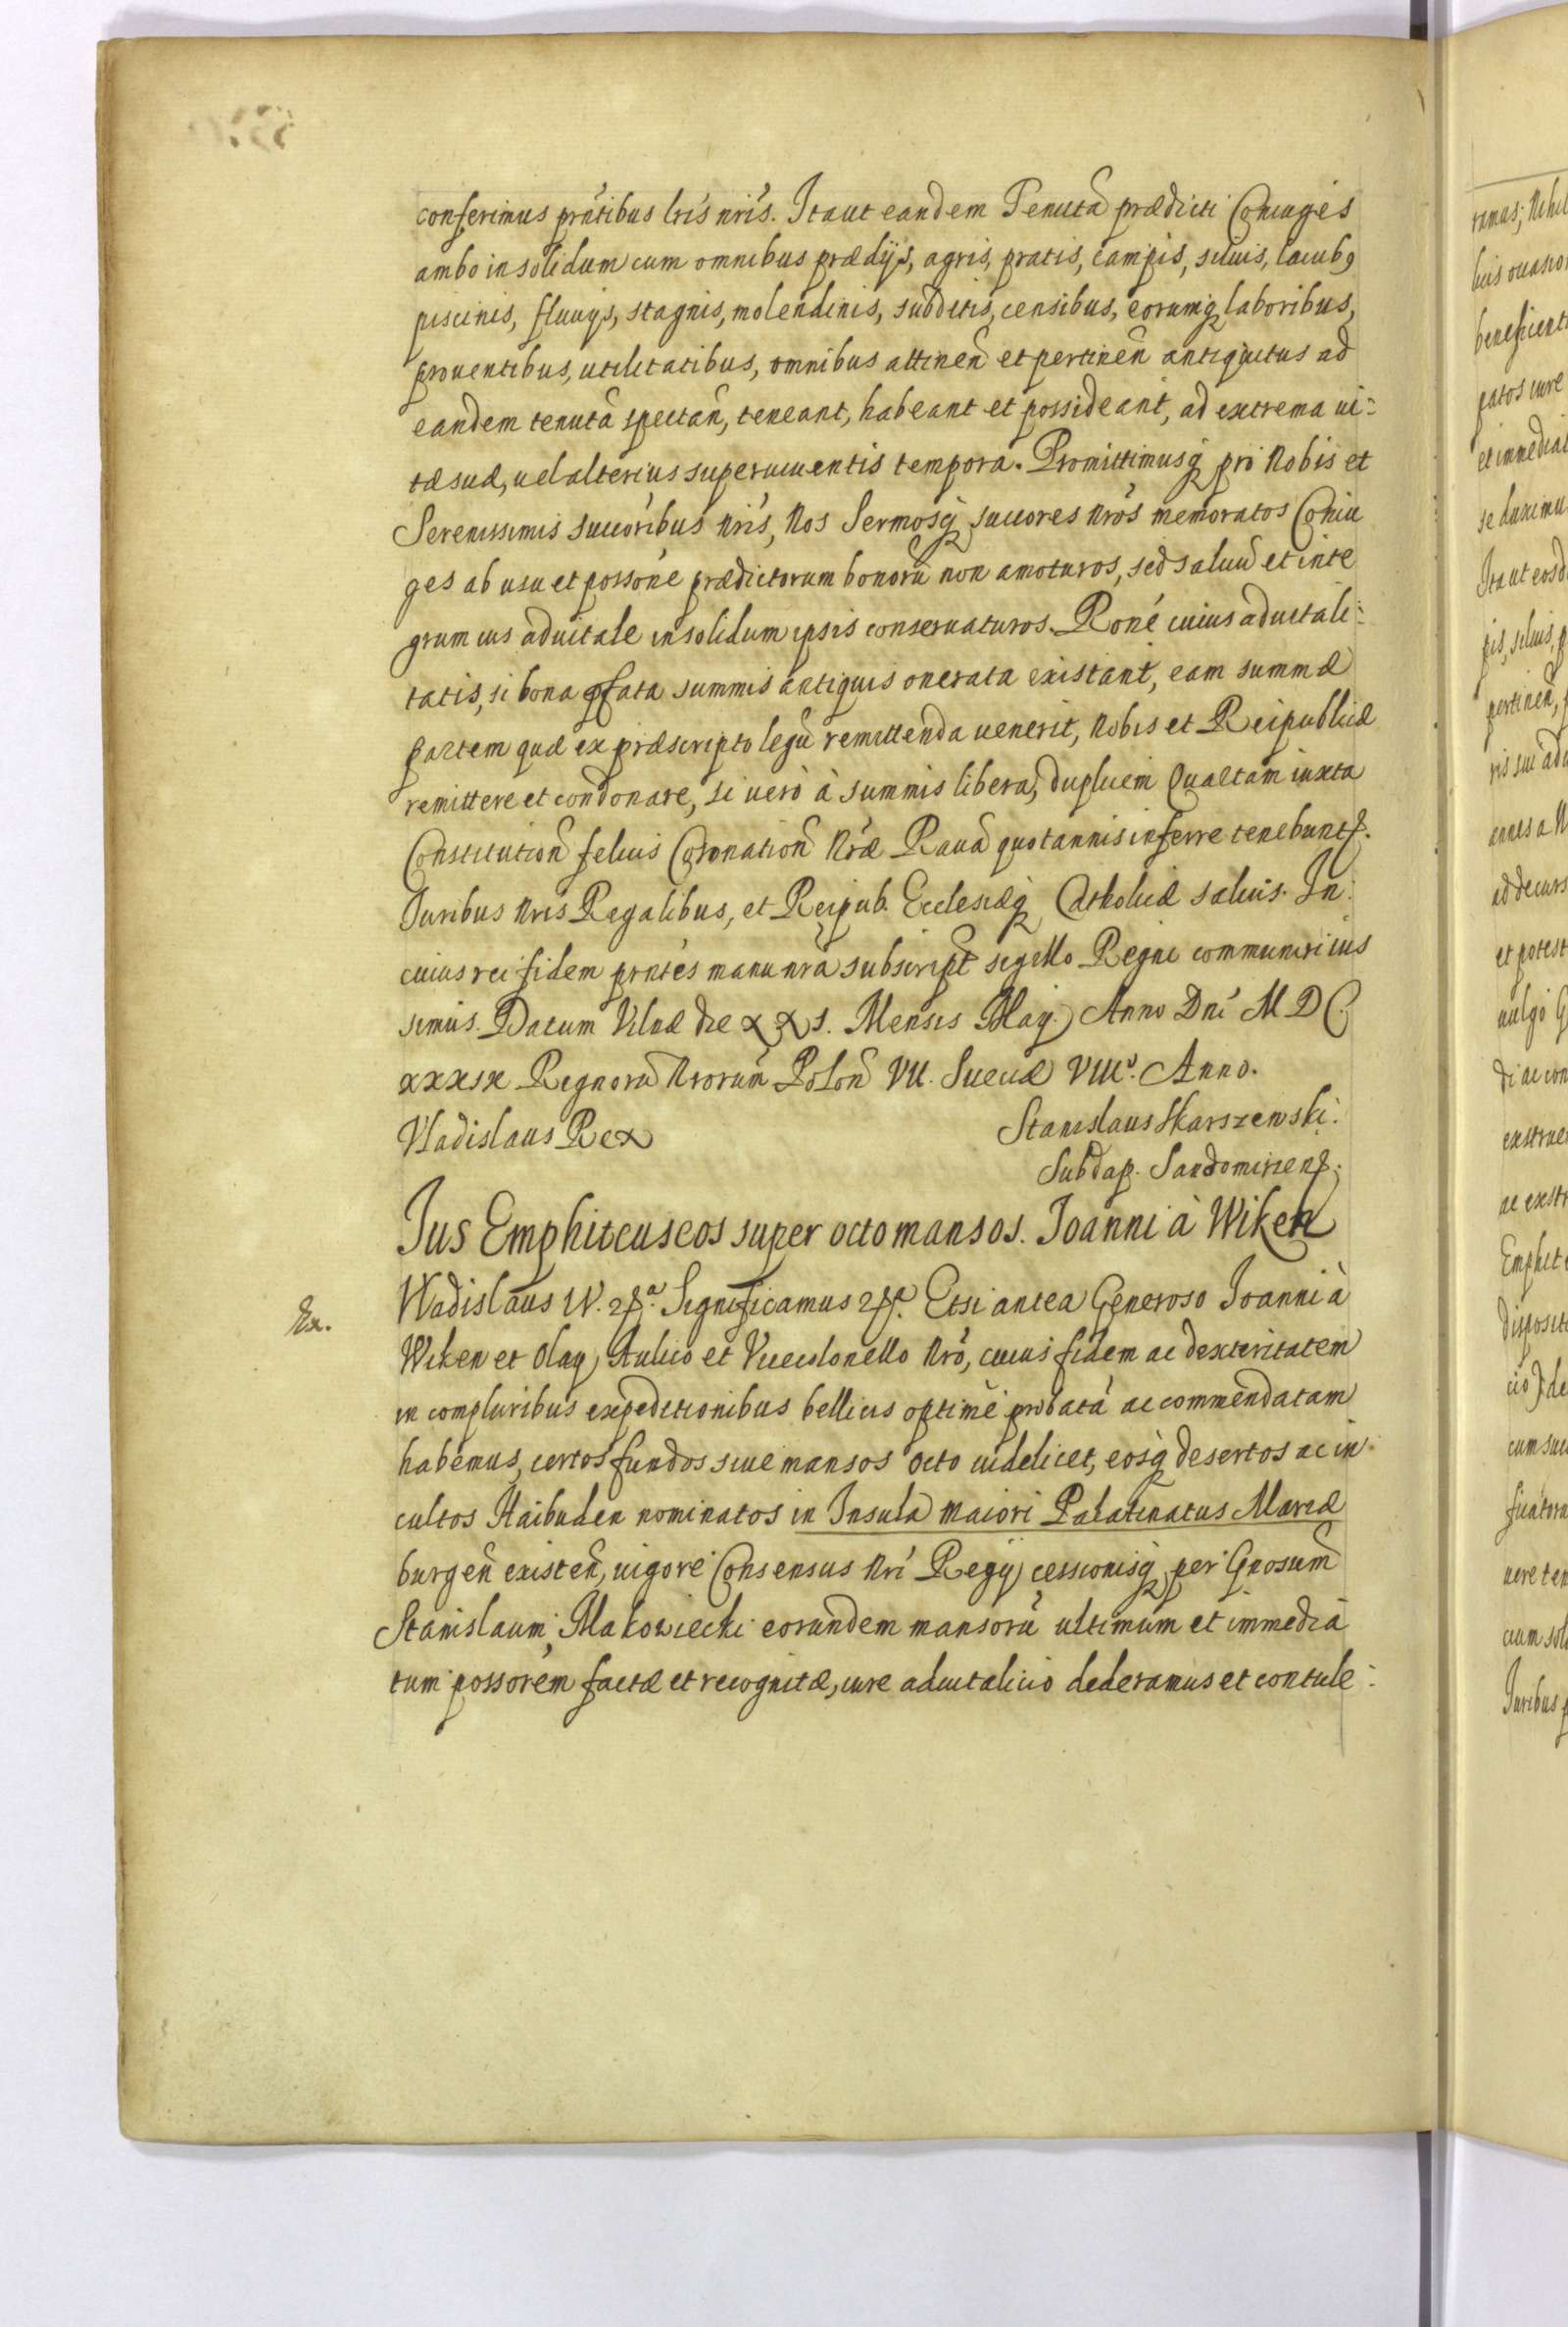 conferimus prñtibus lrĩs nrĩs. Itaut eandem Tenutã prædicti Coniuges
ambo in solidum cum omnibus prædijs, agris, pratis, campis, siluis, lacubꝰ
piscinis, fluuijs, stagnis, molendinis, subditis, censibus, eorumq̨ laboribus,
prouentibus, utilitatibus, omnibus attineñ et pertineñ antiquitus ad
eandem tenutã spectañ, teneant, habeant et possideant, ad extrema ui:
tæ suæ, uel alterius superuiuentis tempora. Promittimusq̨ pro Nobis et
Serenissimis succoribus Nrĩs, Nos Sermosq̨ succores Nrõs memoratos Coniu
ges ab usu et possone prædictorum bonorũ non amoturos, sed saluũ et inte
grum ius aduitale in solidum ipsis conseruaturos. Roné cuius aduitali:
tatis, si bona pfata summis antiquis onerata existant, eam summæ
partem quæ ex præscripto legũ remittenda uenerit, Nobis et Reipublicæ
remittere et condonare, si uerò à summis libera, duplicem Quartam iuxta
Constitutioñ felicis Coronatioñ Nræ Rauã quotannis inferre tenebuntr.
Iuribus Nris Regalibus, et Reipub. Ecclesiæq̨ Catholicæ saluis. In
cuius rei fidem prntes manu nrã subscript sigillo Regni communiri ius
simus. Datum Vilnæ die XXI. Mensis Maij Anno Dni M D C
XXXIX Regnorũ Nrorum Poloñ VII. Sueciæ VIIIº. Anno.
Vladislaus Rex
Stanislaus Skarszewski.
Subdap. Sandomirien̄.
Ius Emphiteuseos super octo mansos. Joanni à Wiken
Ex.
Wladislaus IV. 2ſª. Significamus 2ſª. Etsi antea Generoso Joanni à
Wiken et Olaij Aulico et Vicecolonello Nrõ, cuius fidem ac dexteritatem
in compluribus expeditionibus bellicis optime probatã ac commendatam
habemus, certos fundos siue mansos octo uidelicet, eosq̨ desertos ac in
cultos Haibuden nominatos in Insula maiori Palatinatus Mariæ
burgeñ existeñ, uigore Consensus Nri Regij cessionisq̨ per Gnosum
Stanislaum Makowiecki eorundem mansorũ ultimum et immedia
tum possorem factæ et recognitæ, iure aduitalicio dederamus et contule: